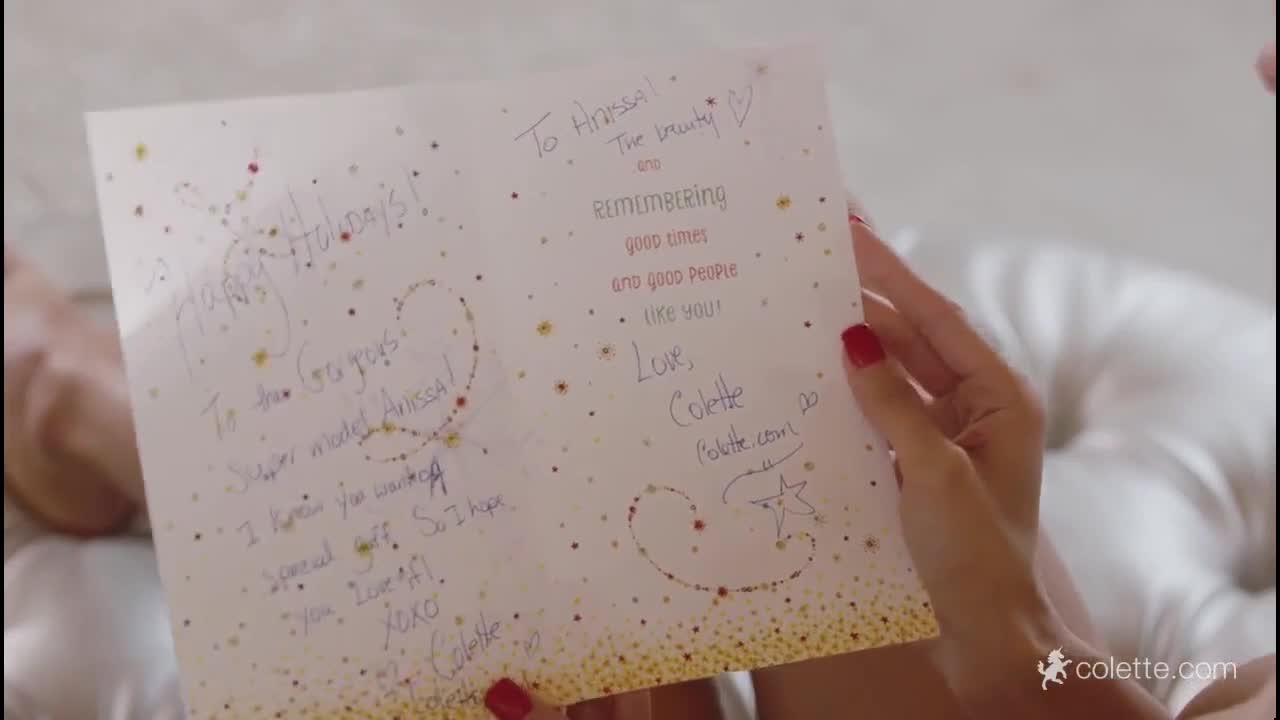 Happy Holidays!
To the Gorgeous
Super model Anissa!
I know you wanted A
special gift. So I hope
You Love it!
XOXO
Colette
To Anissa!
The beauty
and
REMEMBERING
good times
and good people
like you!
Love,
Colette
Colette.com
colette.com